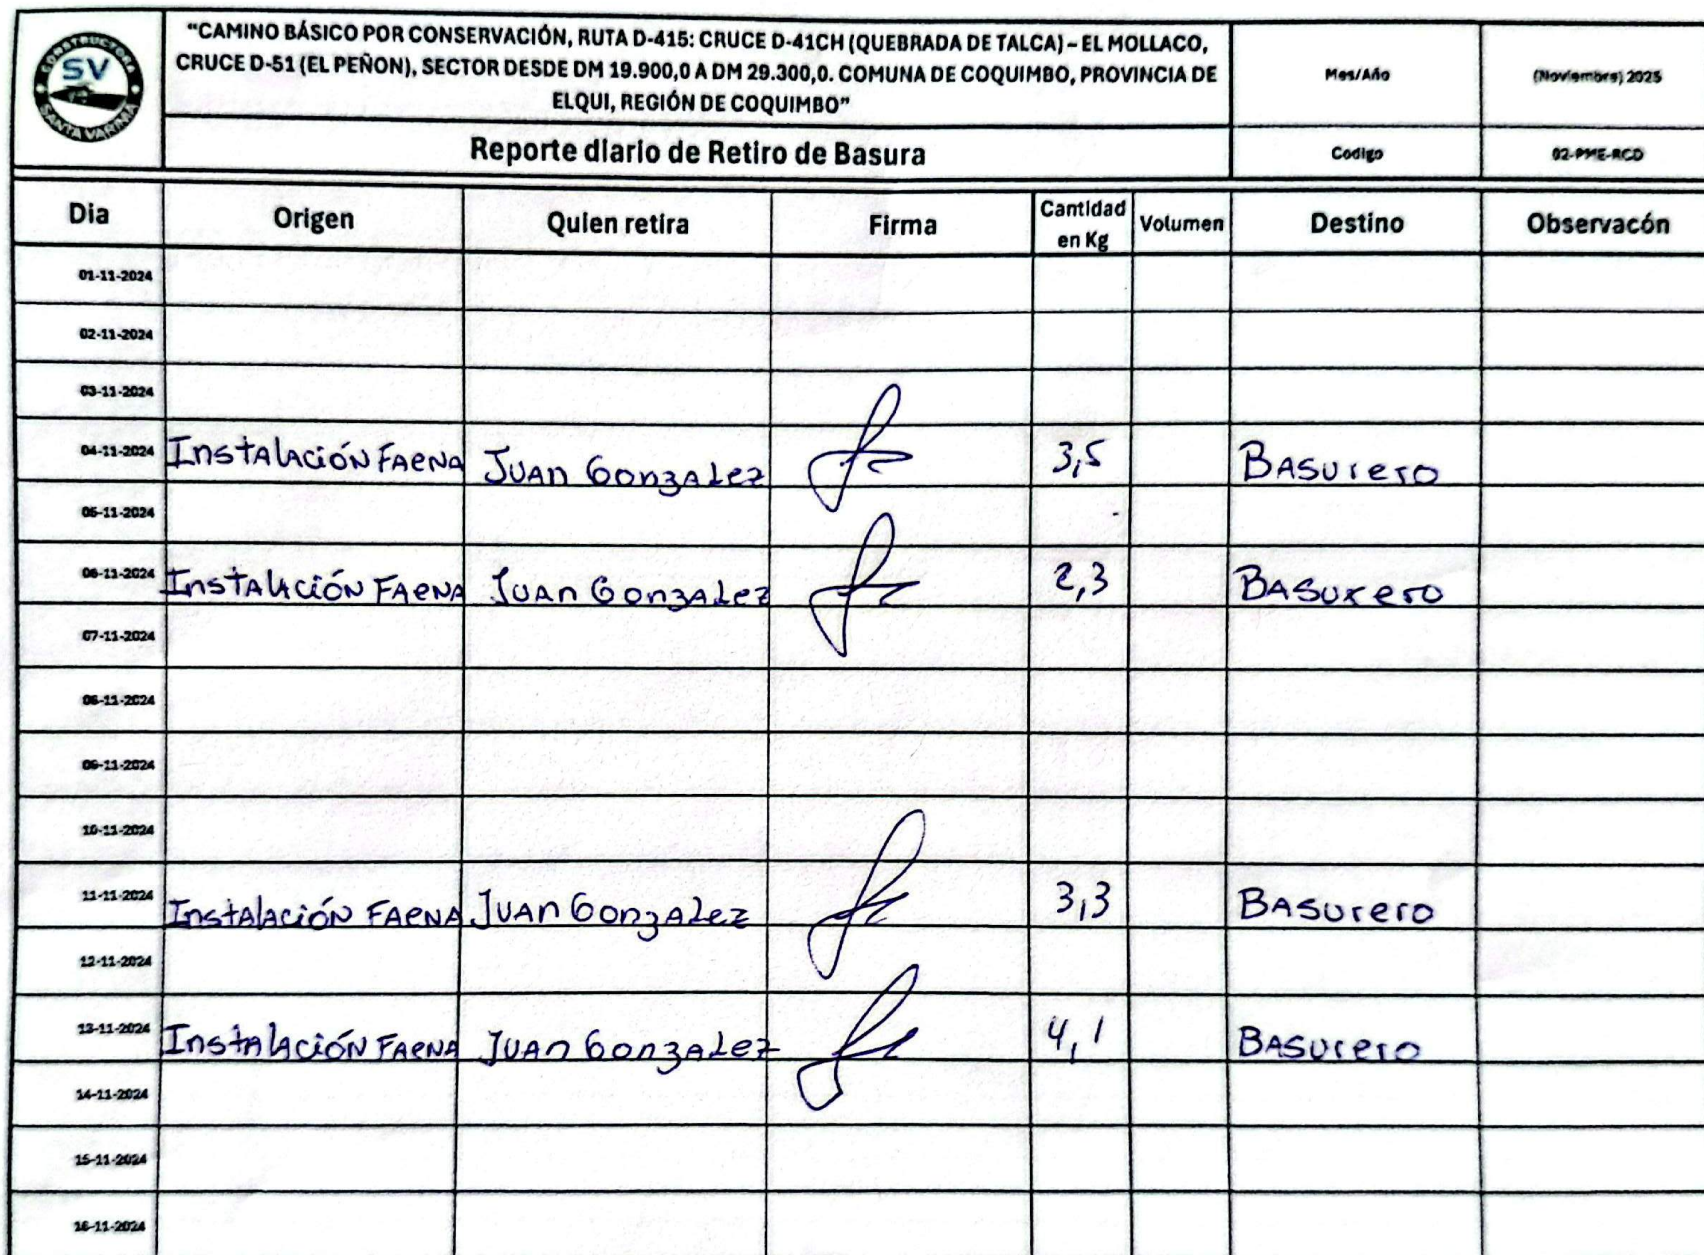 CONSTRUCTORA
SV
SANTA VARINIA
"CAMINO BÁSICO POR CONSERVACIÓN, RUTA D-415: CRUCE D-41CH (QUEBRADA DE TALCA) – EL MOLLACO,
CRUCE D-51 (EL PEÑON), SECTOR DESDE DM 19.900,0 A DM 29.300,0. COMUNA DE COQUIMBO, PROVINCIA DE
ELQUI, REGIÓN DE COQUIMBO"
Mes/Año (Noviembre) 2025
Reporte diario de Retiro de Basura
Codigo 02-PME-RCD
Dia Origen Quien retira Firma Cantidad en Kg Volumen Destino Observacón
01-11-2024
02-11-2024
03-11-2024
04-11-2024 Instalación Faena Juan Gonzalez 3,5 Basurero
05-11-2024
06-11-2024 Instalación Faena Juan Gonzalez 2,3 Basurero
07-11-2024
08-11-2024
09-11-2024
10-11-2024
11-11-2024 Instalación Faena Juan Gonzalez 3,3 Basurero
12-11-2024
13-11-2024 Instalación Faena Juan Gonzalez 4,1 Basurero
14-11-2024
15-11-2024
16-11-2024